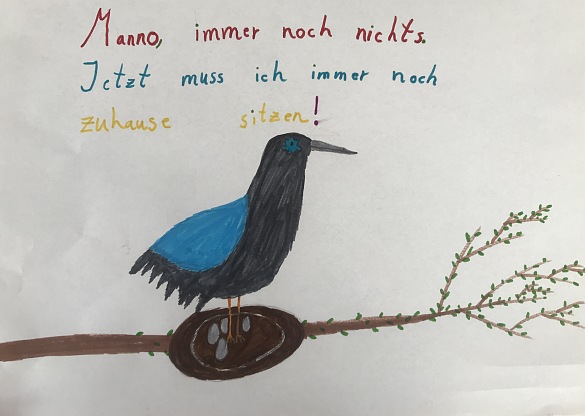 Manno, immer noch nichts.
Jetzt muss ich immer noch
zuhause sitzen!